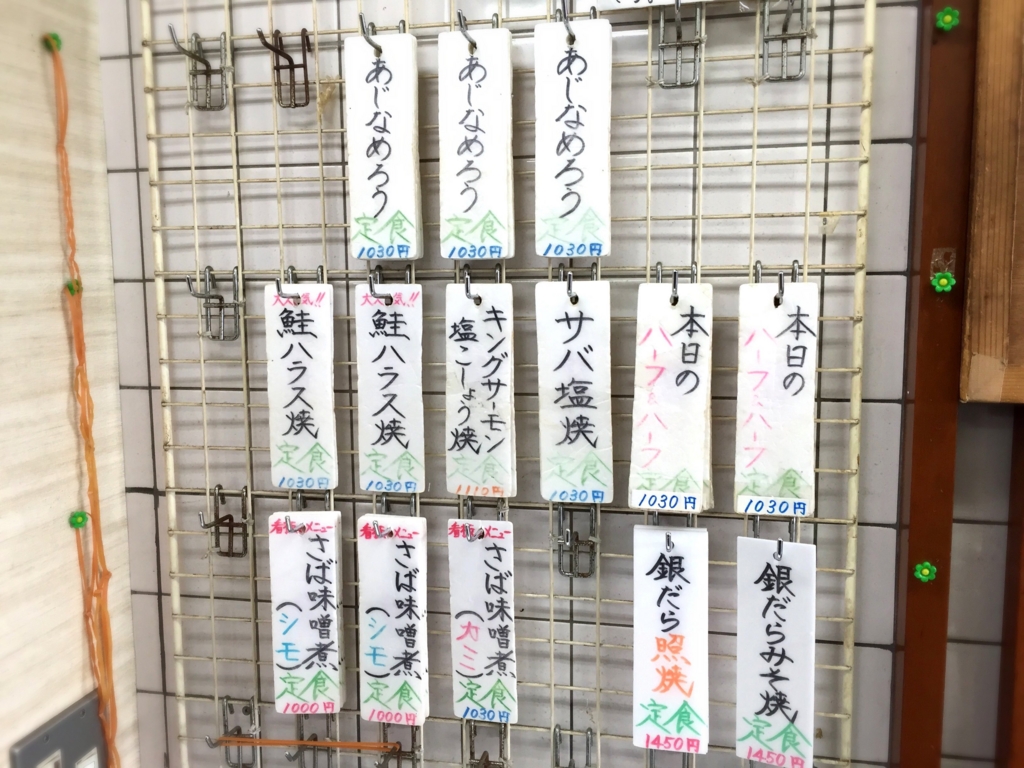 あじなめろう
定食
1030円
あじなめろう
定食
1030円
あじなめろう
定食
1030円
大人気!!
鮭ハラス焼
定食
1030円
大人気!!
鮭ハラス焼
定食
1030円
キングサーモン
塩こしょう焼
定食
1110円
サバ塩焼
定食
1030円
本日の
ハーフ&ハーフ
定食
1030円
本日の
ハーフ&ハーフ
定食
1030円
看板メニュー
さば味噌煮
(シモ)
定食
1000円
看板メニュー
さば味噌煮
(シモ)
定食
1000円
看板メニュー
さば味噌煮
(カミ)
定食
1030円
銀だら
照焼
定食
1450円
銀だらみそ焼
定食
1450円